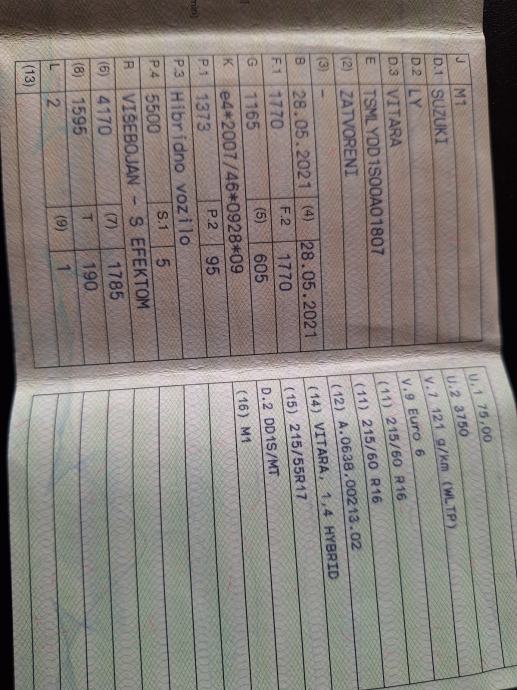 J M1
D.1 SUZUKI
D.2 LY
D.3 VITARA
E TSMLYDD1S00A01807
(2) ZATVORENI
(3) -
B 28.05.2021 (4) 28.05.2021
F.1 1770 F.2 1770
G 1165 (5) 605
K e4*2007/46*0928*09
P.1 1373 P.2 95
P.3 Hibridno vozilo
P.4 5500 S.1 5
R VIŠEBOJAN - S EFEKTOM
(6) 4170 (7) 1785
(8) 1595 T 190
L 2 (9) 1
(13)
U.1 75,00
U.2 3750
V.7 121 g/km (WLTP)
V.9 Euro 6
(11) 215/60 R16
(11) 215/60 R16
(12) A.0638.00213.02
(14) VITARA, 1,4 HYBRID
(15) 215/55R17
D.2 DD1S/MT
(16) M1